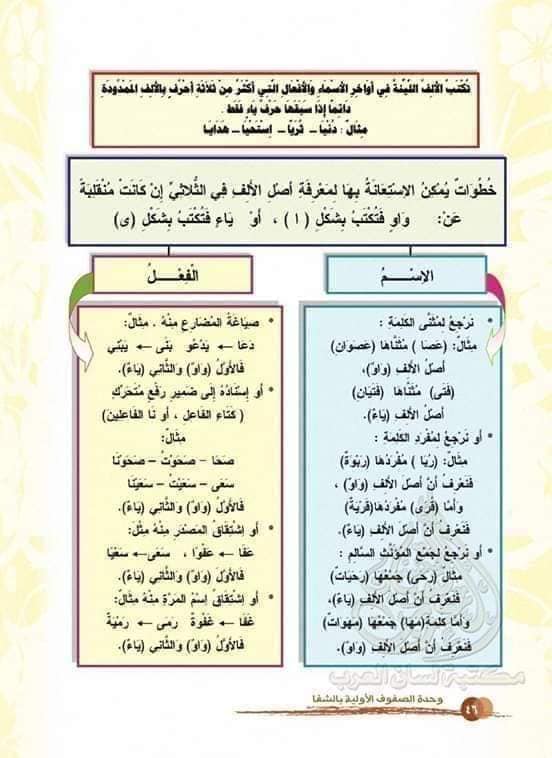 تُكْتَبُ الأَلِفُ اللَّيِّنَةُ فِي أَوَاخِرِ الأَسْمَاءِ وَالأَفْعَالِ الَّتِي أَكْثَرُ مِنْ ثَلَاثَةِ أَحْرُفٍ بِالأَلِفِ المَمْدُودَةِ
دَائِمًا إِذَا سَبَقَهَا حَرْفُ يَاءٍ فَقَطْ .
مِثَال : دُنْيَا – ثُرَيَّا – اِسْتَحْيَا – هَدَايَا
خُطُوَاتٌ يُمْكِنُ الاِسْتِعَانَةُ بِهَا لِمَعْرِفَةِ أَصْلِ الأَلِفِ فِي الثُّلَاثِيِّ إِنْ كَانَتْ مُنْقَلِبَةً
عَنْ: وَاوٍ فَتُكْتَبُ بِشَكْلِ (ا) ، أَوْ يَاءٍ فَتُكْتَبُ بِشَكْلِ (ى)
الاِسْمُ
• نَرْجِعُ لِمُثَنَّى الكَلِمَةِ :
مِثَال: (عَصَا) مُثَنَّاهَا (عَصَوَانِ)
أَصْلُ الأَلِفِ (وَاو)،
(فَتَى) مُثَنَّاهَا (فَتَيَانِ)
أَصْلُ الأَلِفِ (يَاء).
• أو نَرْجِعُ لِمُفْرَدِ الكَلِمَةِ :
مِثَال: (رُبَا) مُفْرَدُهَا (رَبْوَة)
فَنَعْرِفُ أَنَّ أَصْلَ الأَلِفِ (وَاو) ،
وَأَمَّا (قُرَى) مُفْرَدُهَا(قَرْيَة)
فَنَعْرِفُ أَنَّ أَصْلَ الأَلِفِ (يَاء).
• أو نَرْجِعُ لِجَمْعِ المُؤَنَّثِ السَّالِمِ :
مِثَال (رَحَى) جَمْعُهَا (رَحَيَات)
فَنَعْرِفُ أَنَّ أَصْلَ الأَلِفِ (يَاء)،
وَأَمَّا كَلِمَة(مَهَا) جَمْعُهَا (مَهَوَات)
فَنَعْرِفُ أَنَّ أَصْلَ الأَلِفِ (وَاو).
الْفِعْلُ
• صِيَاغَةُ المُضَارِعِ مِنْهُ . مِثَال:
دَعَا ← يَدْعُو بَنَى ← يَبْنِي
فَالأَوَّلُ (وَاو) وَالثَّانِي (يَاء).
• أو إِسْنَادُهُ إِلَى ضَمِيرِ رَفْعٍ مُتَحَرِّك
( كَتَاءِ الفَاعِل ، أو نَا الفَاعِلين)
مِثَال:
صَحَا – صَحَوْتُ – صَحَوْنَا
سَعَى – سَعَيْتُ – سَعَيْنَا
فَالأَوَّلُ (وَاو) وَالثَّانِي (يَاء).
• أو اِشْتِقَاقُ المَصْدَرِ مِنْهُ مِثْل:
عَفَا ← عَفْوًا ، سَعَى← سَعْيًا
فَالأَوَّلُ (وَاو) وَالثَّانِي (يَاء).
• أو اِشْتِقَاقُ اِسْمِ المَرَّةِ مِنْهُ مِثَال:
غَفَا ← غَفْوَةً رَمَى ← رَمْيَةً
فَالأَوَّلُ (وَاو) وَالثَّانِي (يَاء).
مكتبة لسان العرب
وحدة الصفوف الأولية بالشفا
٤٦